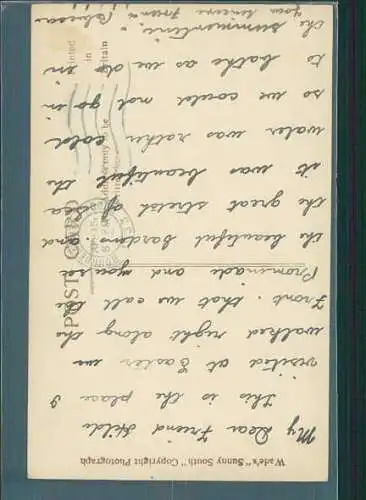 Wade's "Sunny South" Copyright Photograph
POST CARD
Printed
in
Britain
My Dear Friend Hilde
This is the place I
visited at Easter we
walked right along the
Front. that we call the
Promenade and you see
the beautiful Gardens and
the great stretch of sea
it was beautiful the
water was rather cold
so we could not go in
to bathe as we do in
the summertime.
Your sincere Friend